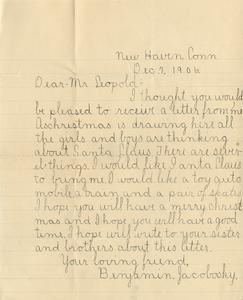 New Haven Conn
Dec. 2, 1906
Dear Mr. Leopold:-
I thought you would
be pleased to receive a letter from me
As christmas is drawing hire all
the girls and boys are thinking
about Santa Claus. There are sever
el things I would like Santa Claus
to bring me I would like a toy auto
mobile, a train, and a pair of skates
I hope you will have a merry christ
mas and I hope you will have a good
time. I hope will write to your sister
and brothers about this letter.
Your loving friend,
Benjamin Jacobosky.